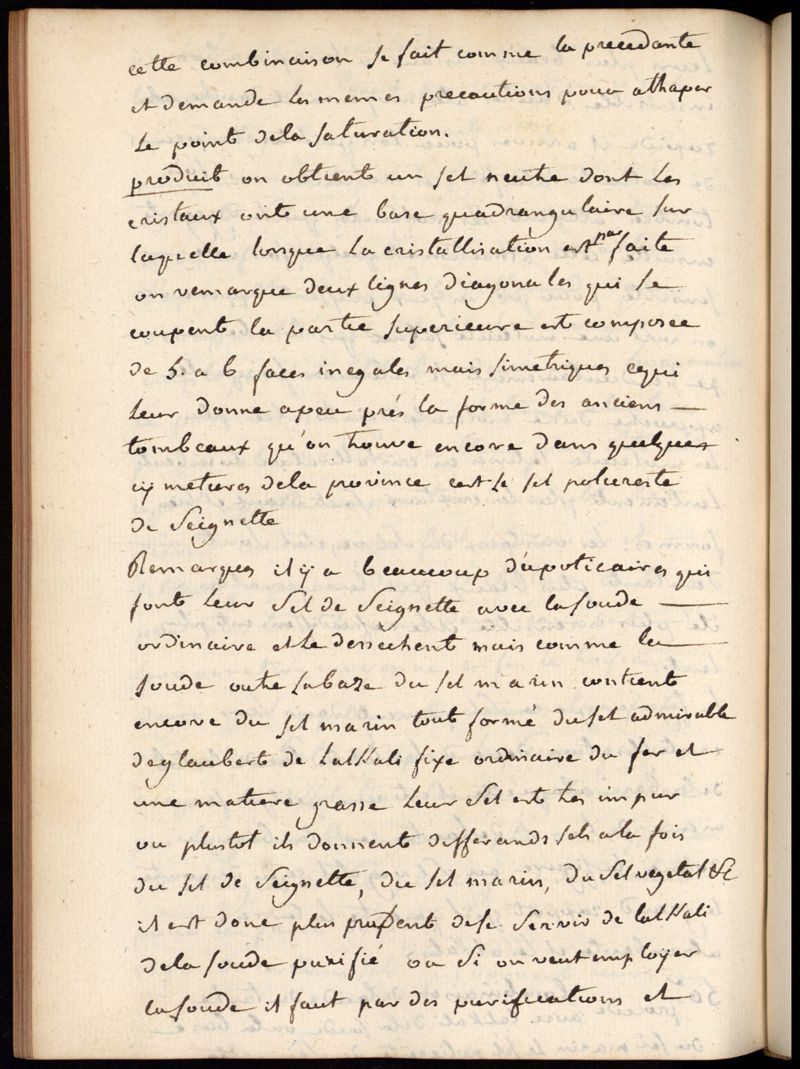 cette combinaison se fait comme la precedante
et demande les memes precautions pour athaper
Le point dela saturation.
produit on obtient un sel neutre dont les
cristaux onts une base quadrangulaire sur
laquelle lorsque la cristallisation est faite
on remarque deux lignes diagonales qui se
coupent la partie superieure est composée
de 5. a 6 faces inegales mais simetriques cequi
Leur donne apeu prés la forme des anciens —
tombeaux qu'on trouve encore dans quelques
cymetieres dela province cest le sel policreste
de Seignette
Remarques il y a beaucoup d'apoticaires qui
font leur sel de Seignette avec la soude —
ordinaire et le dessechent mais comme la —
soude outre labaze du sel marin contient
encore du sel marin tout formé du sel admirable
deglauberts de lalkali fixe ordinaire du fer et
une matiere grasse leur sel est tres impur
ou plustot ils donnent differands sels a la fois
du sel de Seignette, du sel marin, du sel vegetal &c
il est donc plus prudent dese servir de lalkali
dela soude purifié ou si on veut employer
la soude il faut par des purifications et